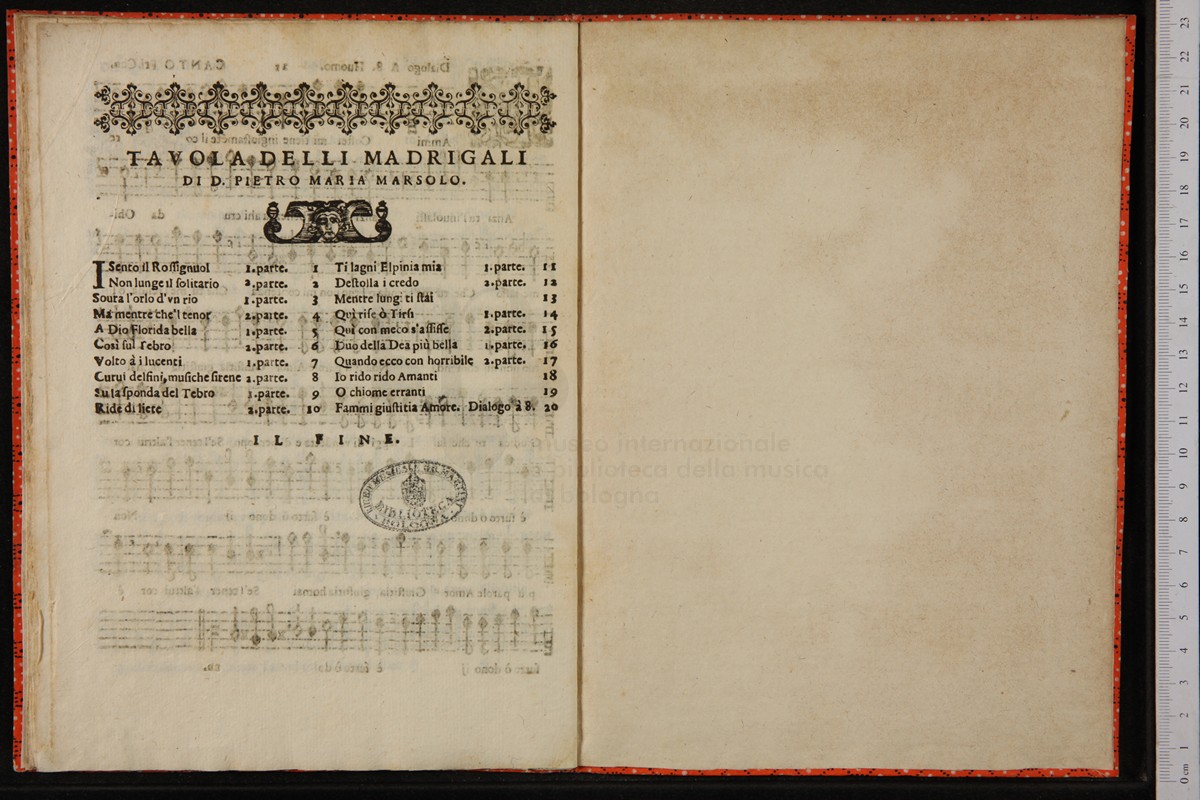 TAVOLA DELLI MADRIGALI
DI D. PIETRO MARIA MARSOLO.
I Sento il Roſſignuol 1.parte. 1
Non lunge il ſolitario 2.parte. 2
Soura l'orlo d'vn rio 1.parte. 3
Ma mentre che'l tenor 2.parte. 4
A Dio Florida bella 1.parte. 5
Così ſul Tebro 2.parte. 6
Volto à i lucenti 1.parte. 7
Curui delfini, muſiche ſirene 2.parte. 8
Su la ſponda del Tebro 1.parte. 9
Ride di liete 2.parte. 10
Ti lagni Elpinia mia 1.parte. 11
Deſtolla i credo 2.parte. 12
Mentre lungi ti ſtai 13
Quì riſe ò Tirſi 1.parte. 14
Quì con meco s'aſſiſſe 2.parte. 15
Duo della Dea più bella 1.parte. 16
Quando ecco con horribile 2.parte. 17
Io rido rido Amanti 18
O chiome erranti 19
Fammi giuſtitia Amore. Dialogo à 8. 20
IL FINE.
BIBLIOTECA
BOLOGNA
museo internazionale
e biblioteca della musica
di bologna